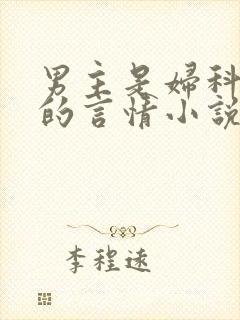 男主是婦科
的言情小說
李程遠